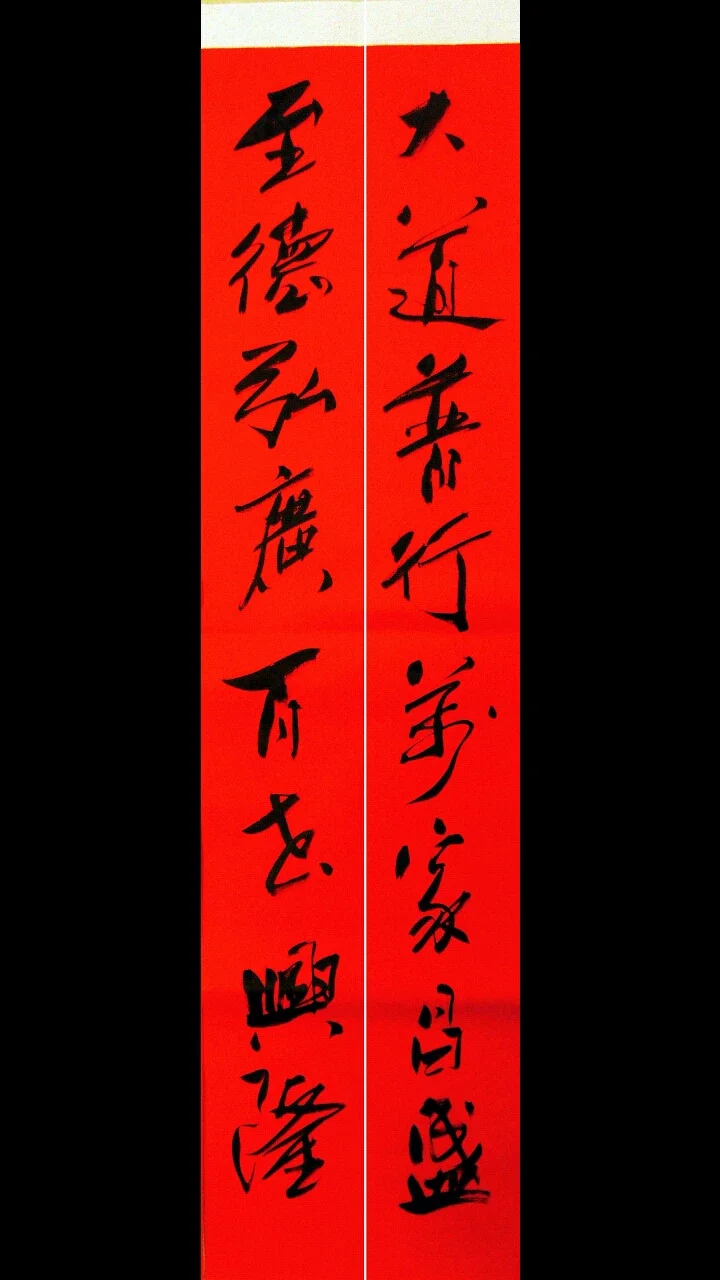 大道普行萬家昌盛
至德弘廣百世興隆